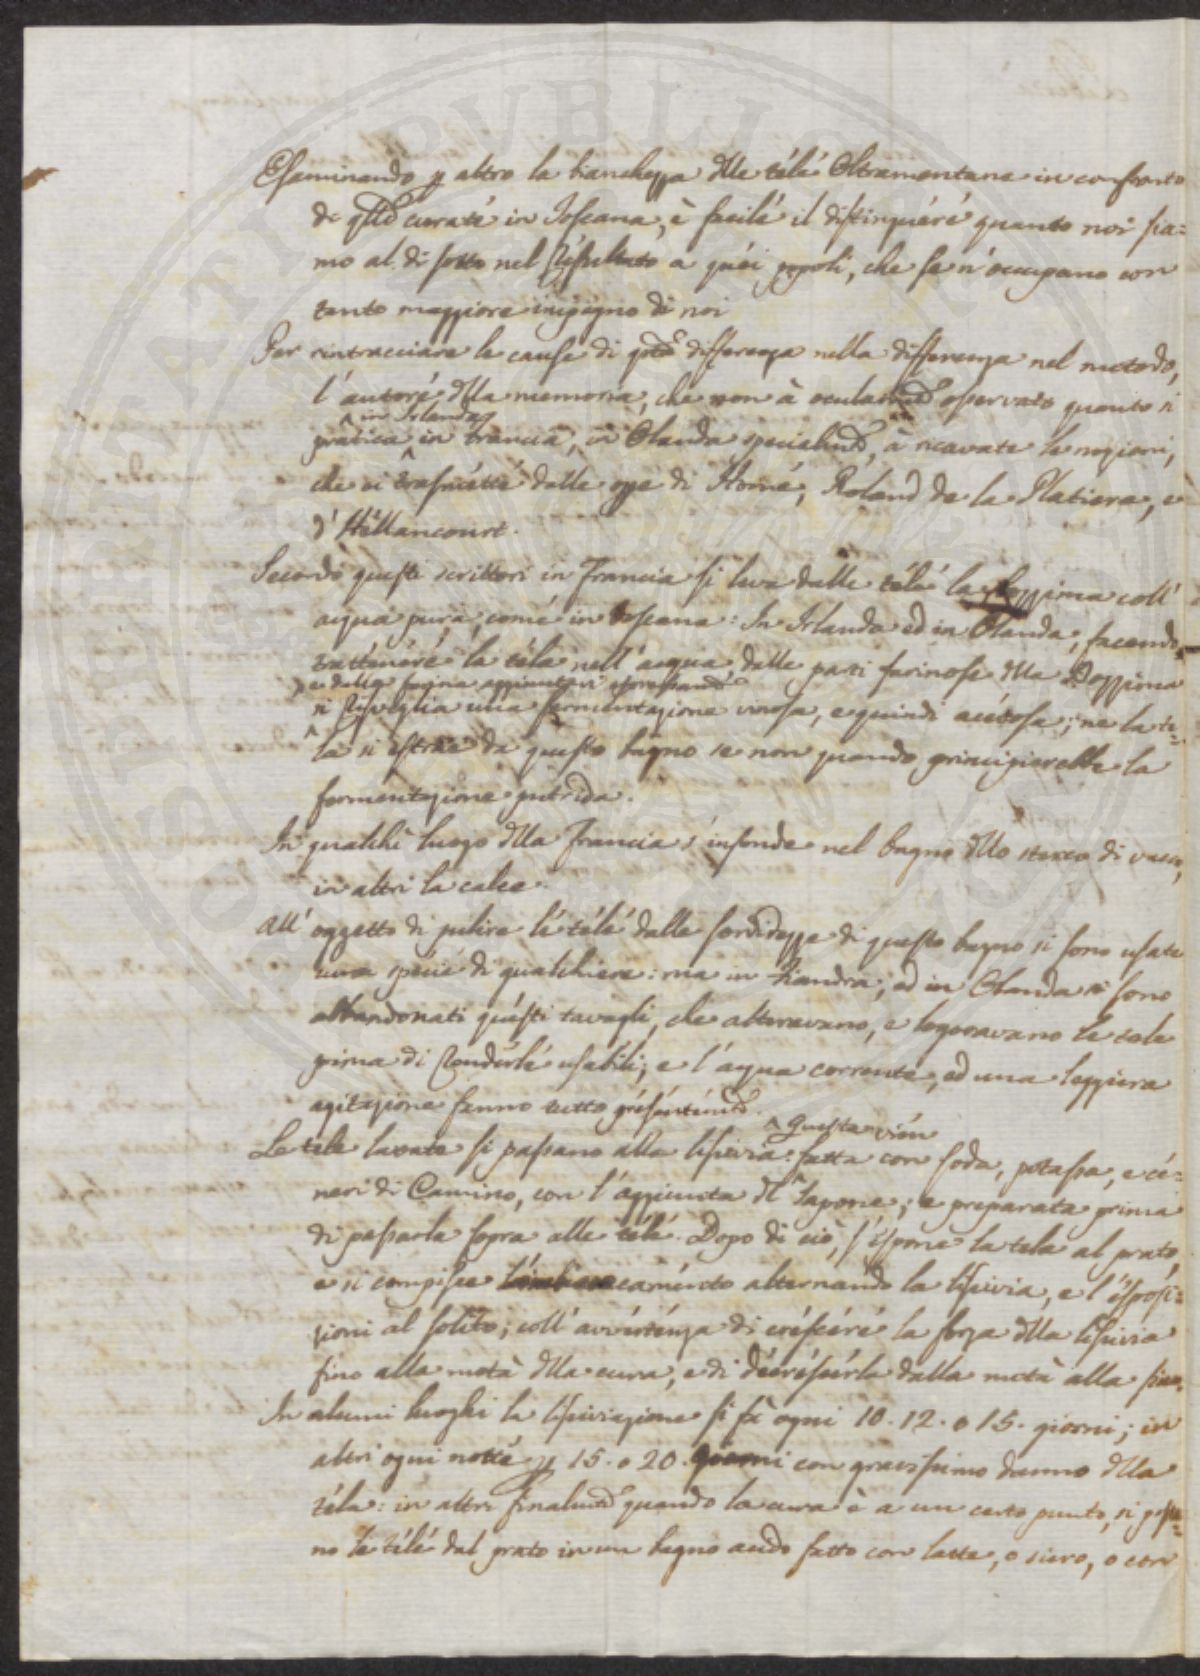 Esaminando p altro la bianchezza dlle télé Oltramontane in confronto
de qlle curate in Toscana, è facilé il distinguéré quanto noi sia=
mo al di sotto nel Résultato a quéi popoli, che se n'occupano con
tanto maggiore impégno di noi
Per rintracciare le cause di qta differenza nella differenza nel metodo,
l'autoré dlla memoria, che non à ocularmte osservato quanto si
in Irlanda
pratica in Francia, in Olanda specialmte, à ricavate le nozioni,
che ci trasmétté dalle ope di Home, Roland de la Platiere, e
d'Héllancourt.
Secondo questi scrittori in Francia si leva dalle télé la Bozzima coll'
acqua pura, comé in Toscana: In Irlanda ed in Olanda, facendo
trattenéré la téla nell'acqua, dalle parti farinose dlla Bozzima
e dalla farina aggiuntavi espressamte
si Risveglia una fermentazione vinosa, e quindi acétosa; ne la te=
la si estraé da questo bagno se non quando principierebbe la
fermentazione putrida.
In qualché luogo dlla Francia s'infonde nel bagno dllo sterco di vacca,
in altri la calce.
All'oggetto di pulire lé télé dalle sordidezze di questo bagno si sono usate
una spécié di gualchiere: ma in Fiandra, ed in Olanda si sono
abbandonati quésti tavagli, che alteravano, e logoravano le tele
prima di Rendérlé usabili; e l'acqua corrente, ed una leggiera
agitazione fanno tutto présénteménte.
Questa vién
Le tele lavate si passano alla lisivia: fatta con soda, potassa, e cé=
neri di Camino, con l'aggiunta dl Sapone; e preparata prima
di passarla sopra alle télé. Dopo di ciò, s'éspone la tela al prato,
e si compisce caménto alternando la lisivia, e l'ésposi=
zioni al solito; coll'avvérténza di créscéré la forza dlla lisivia
fino alla metà dlla cura, e di décréscérla dalla metà alla fine.
In alcuni luoghi la lisiviazione si fà ogni 10. 12. o 15. giorni; in
altri ogni notte p 15. o 20. giorni con gravissimo danno dlla
téla: in altri finalmte quando la cura è a un certo punto, si passa=
no lé télé dal prato in un bagno acido fatto con latte, o siero, o con